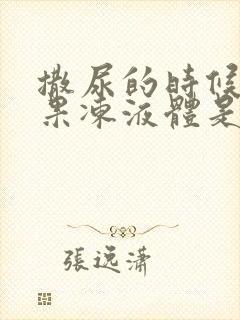 撒尿的時候
果凍液體是
張逸瀟